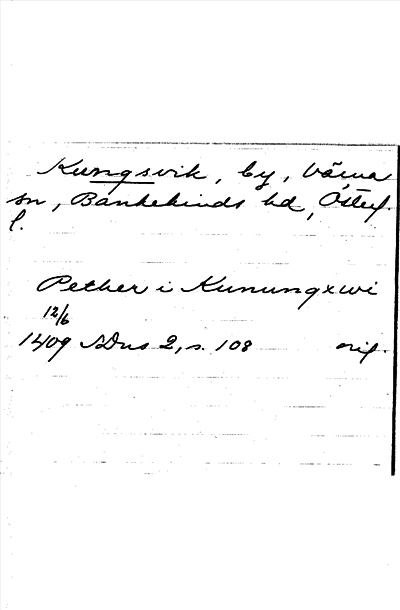 Kungsvik, by, Värna
sn, Bankekinds hd, Östergl.
l.
Pether i Kunungxwi
12/6
1409 SDns 2, s. 108 orig.